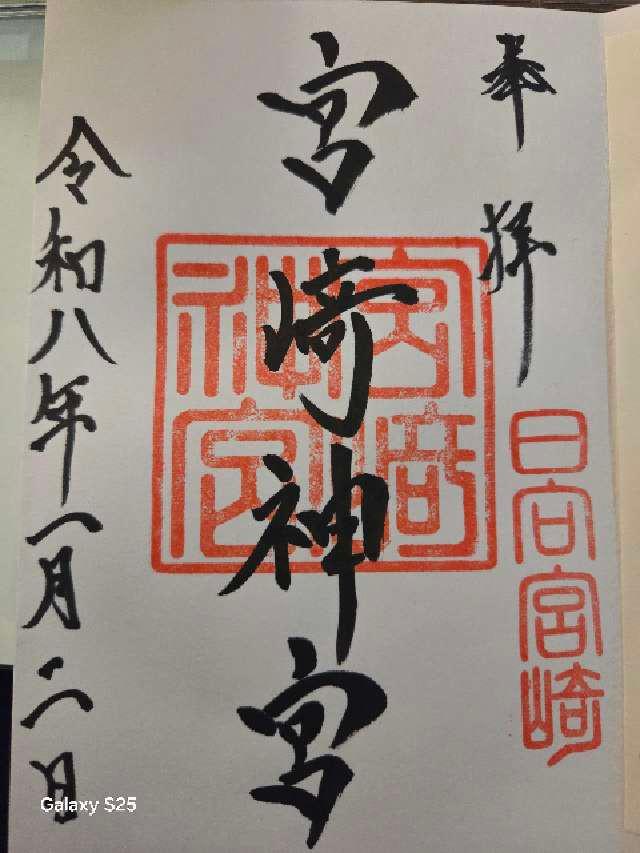 奉拝
日向宮崎
宮崎神宮
宮崎神宮
令和八年一月二日
Galaxy S25